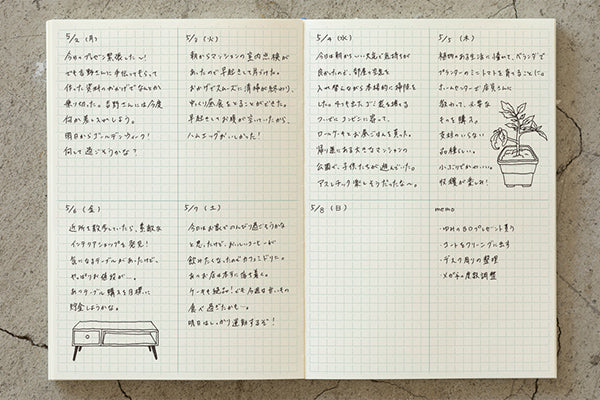 5/2 (月)
今日のプレゼン緊張した〜!
でも吉野さんに手伝ってもらって
作った資料のおかげでなんとか
乗り切った。吉野さんには今度
何かお礼しよう。
明日からゴールデンウィーク!
何して過ごそうかな?
5/3 (火)
朝からマンションの室内点検が
あったので早起きして片づけた。
おかげでスムーズに清掃が終わり、
ゆっくり昼食をとることができた。
早起きしてお腹が空いていたから、
ハムエッグおいしかった!
5/4 (水)
今日は朝からいい天気で気持ちが
良かったので、部屋の空気を
入れ替えながら本格的に掃除を
した。
ついでにコンビニに寄って、
ロールケーキとお茶ごはんを買った。
帰り道にある大きなマンションの
公園で、子供たちが遊んでいた。
アスレチック楽しそうだったな〜。
5/5 (木)
植物のある生活に憧れて、ベランダで
プランターのミニトマトを育てることに。
ホームセンターで店員さんに
教わって、必要な
ものを購入。
支柱のいらない
品種らしい。
小ぶりでかわいい。
収穫が楽しみ!
5/6 (金)
近所を散歩していたら、素敵な
インテリアショップを発見!
気になるテーブルがあったけど、
やっぱりお値段が…。
あのテーブル購入を目標に
貯金しようかな。
5/7 (土)
今日はお家でのんびり過ごそうかな
と思ったけど、おいしいコーヒーが
飲みたくなったのでカフェミドリに。
あのお店は本当に落ち着く。
ケーキも絶品!でも今週は甘いもの
食べ過ぎたかも…。
明日はしっかり運動するぞ!
5/8 (日)
memo
・ゆみのBDプレゼント買う
・コートをクリーニングに出す
・デスク周りの整理
・メガネの度数調整